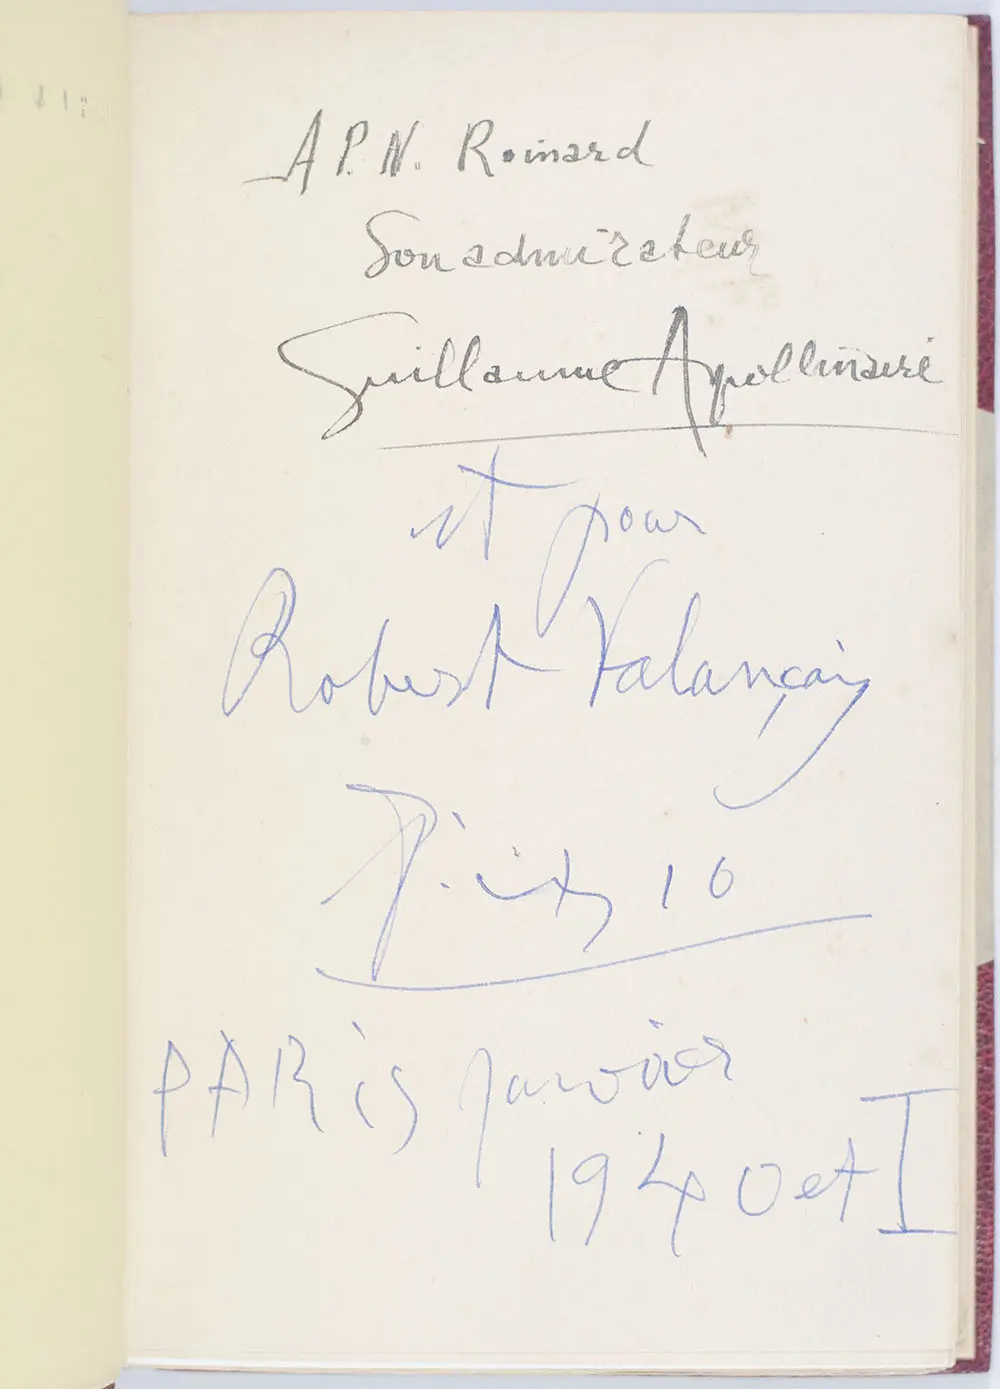 A P. N. Roinard
Son admirateur
Guillaume Apollinaire
et pour
Robert Valançay
PARis janvier
1940 et I